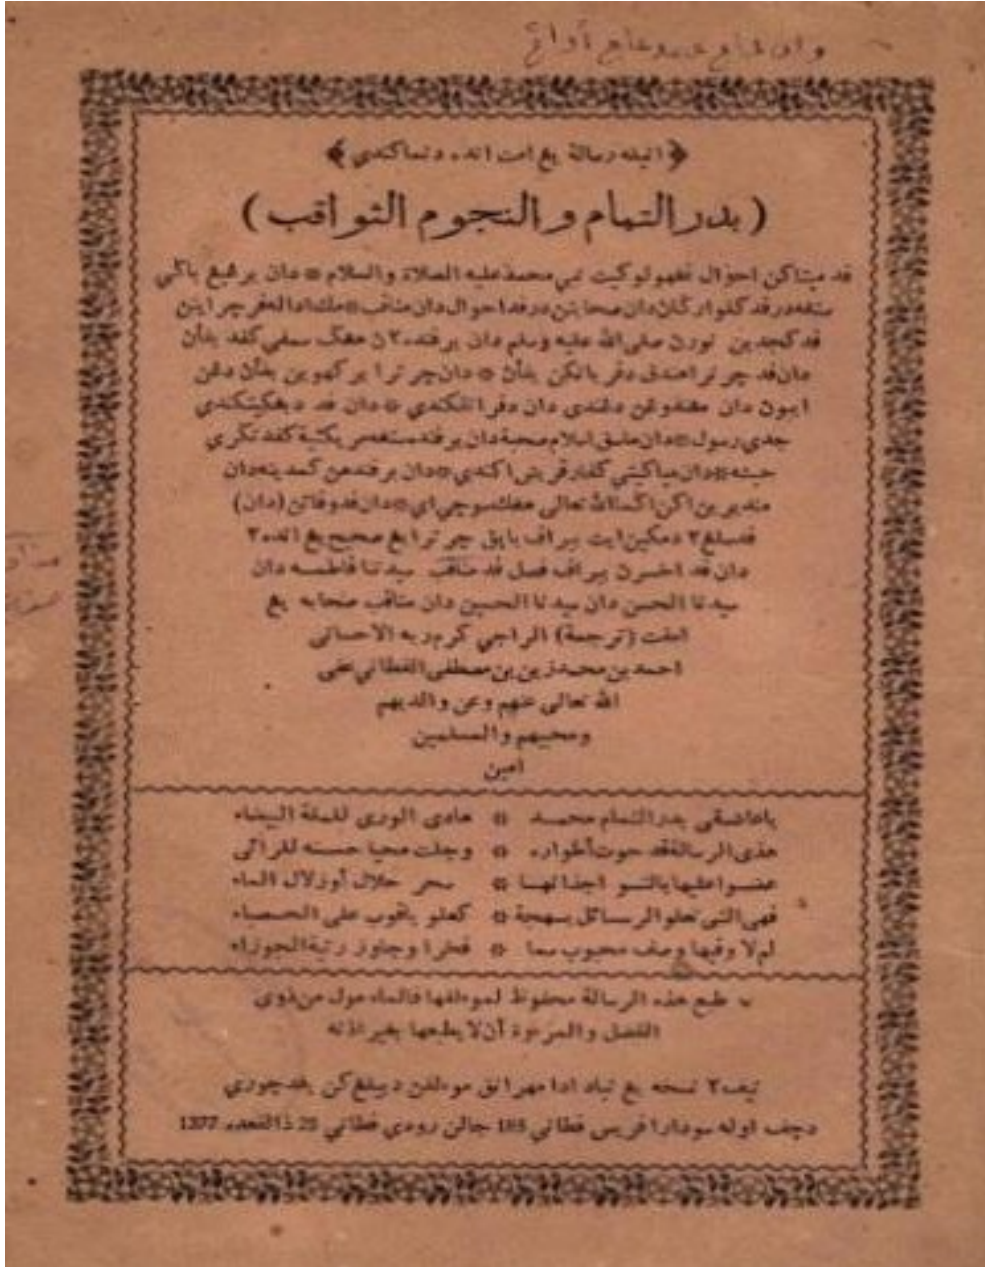 ﴿ اينيله رسالة يغ امت انده دنماكندي ﴾
( بدر التمام والنجوم الثواقب )
فد ميتاكن احوال فغهولو كيت نبي محمد عليه الصلاة والسلام * دان برغبغ باكي
دان صحابتن درفد احوال دان مناقب *
فد كجدين نورن صلى الله عليه وسلم دان برفنده٢ن هغك سمفي كفد
دان فد چرترا هندق دفربانكن * دان چرترا بركهوين
ايبون دان مغندوغن دغندي دان دفرانقكندي * دان فد دبغكيتكندي
جدي رسول * دان اسلام صحبة دان برفنده ستغه مريكئة كفد نكري
حبشه * دان مياكيتي كفار قريش اكندي * دان برفندهن كمدينه دان
منديرين اكن اكام الله تعالى هغك سوچي اي * دان فد وفاتن (دان)
فدسلغ٢ دمكين ايت ببراف باپق چرترا يغ صحيح يغ انده٢
دان فد اخيرن ببراف فصل فد مناقب سيدتنا فاطمه دان
سيدنا الحسن دان سيدنا الحسين دان مناقب صحابه يغ
امفت (ترجمة) الراجي كرم ربه الاحساني
احمد بن محمد زين بن مصطفى الفطاني عفى
الله تعالى عنهم وعن والديهم
ومحبيهم والمسلمين
امين
ياعاشقي بدر التمام محمد * هادى الورى للملة البيضاء
هذى الرسالة قد حوت أطواره * وجلت محيا حسنه للرائى
عضوا عليها بالنواجذ انها * سحر حلال أو زلال الماء
فهى التى تعلو الرسائل بهجة * كعلو ياقوت على الحصباء
لم لا وفيها وصف محبوب سما * فخرا وجاوز رتبة الجوزاء
طبع هذه الرسالة محفوظ لمولفها فالمامول من ذوى
الفضل والمروءة أن لا يطبعها بغير اذنه
تيف٢ نسخه يغ تياد ادا مهر انق موءلفن دبيلغكن يغ دچوري
دچيف اوله سودارا فريس فطاني 185 جالن رودي فطاني 25 ذالقعده 1377